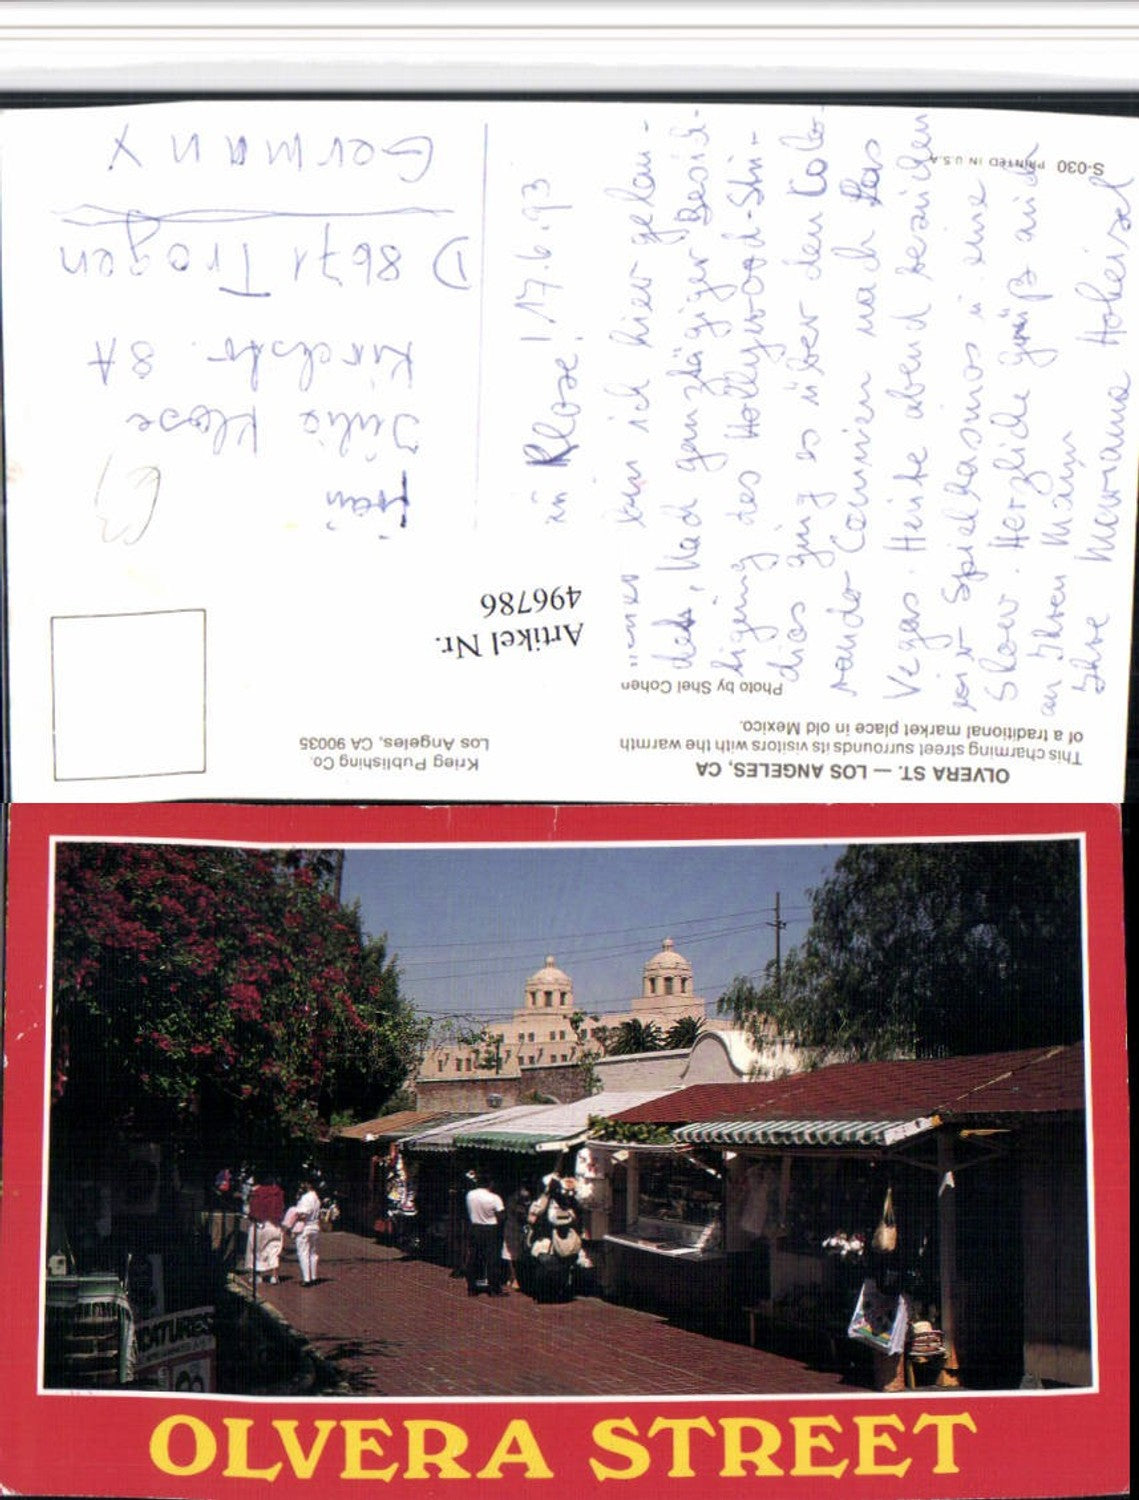 OLVERA ST. — LOS ANGELES, CA
This charming street surrounds its visitors with the warmth
of a traditional market place in old Mexico.
Photo by Shel Cohen
Krieg Publishing Co.
Los Angeles, CA 90035
Artikel Nr.
496786
S-030 PRINTED IN U.S.A.
17.6.93
Klose!
bin ich hier gelan-
Nach ganztägiger Besich-
tigung des Hollywood-Stu-
dios ging es über den Colo-
rando Cannien nach Las
Vegas. Heute abend besuchen
wir Spielkasinos u eine
Show. Herzliche Grüß auch
an Ihren Mann
Ihre Marianne Hoheisel
Frau
Julia Klose
Kirchstr. 8A
D 8671 Trogen
Germany
CATURES
OLVERA STREET